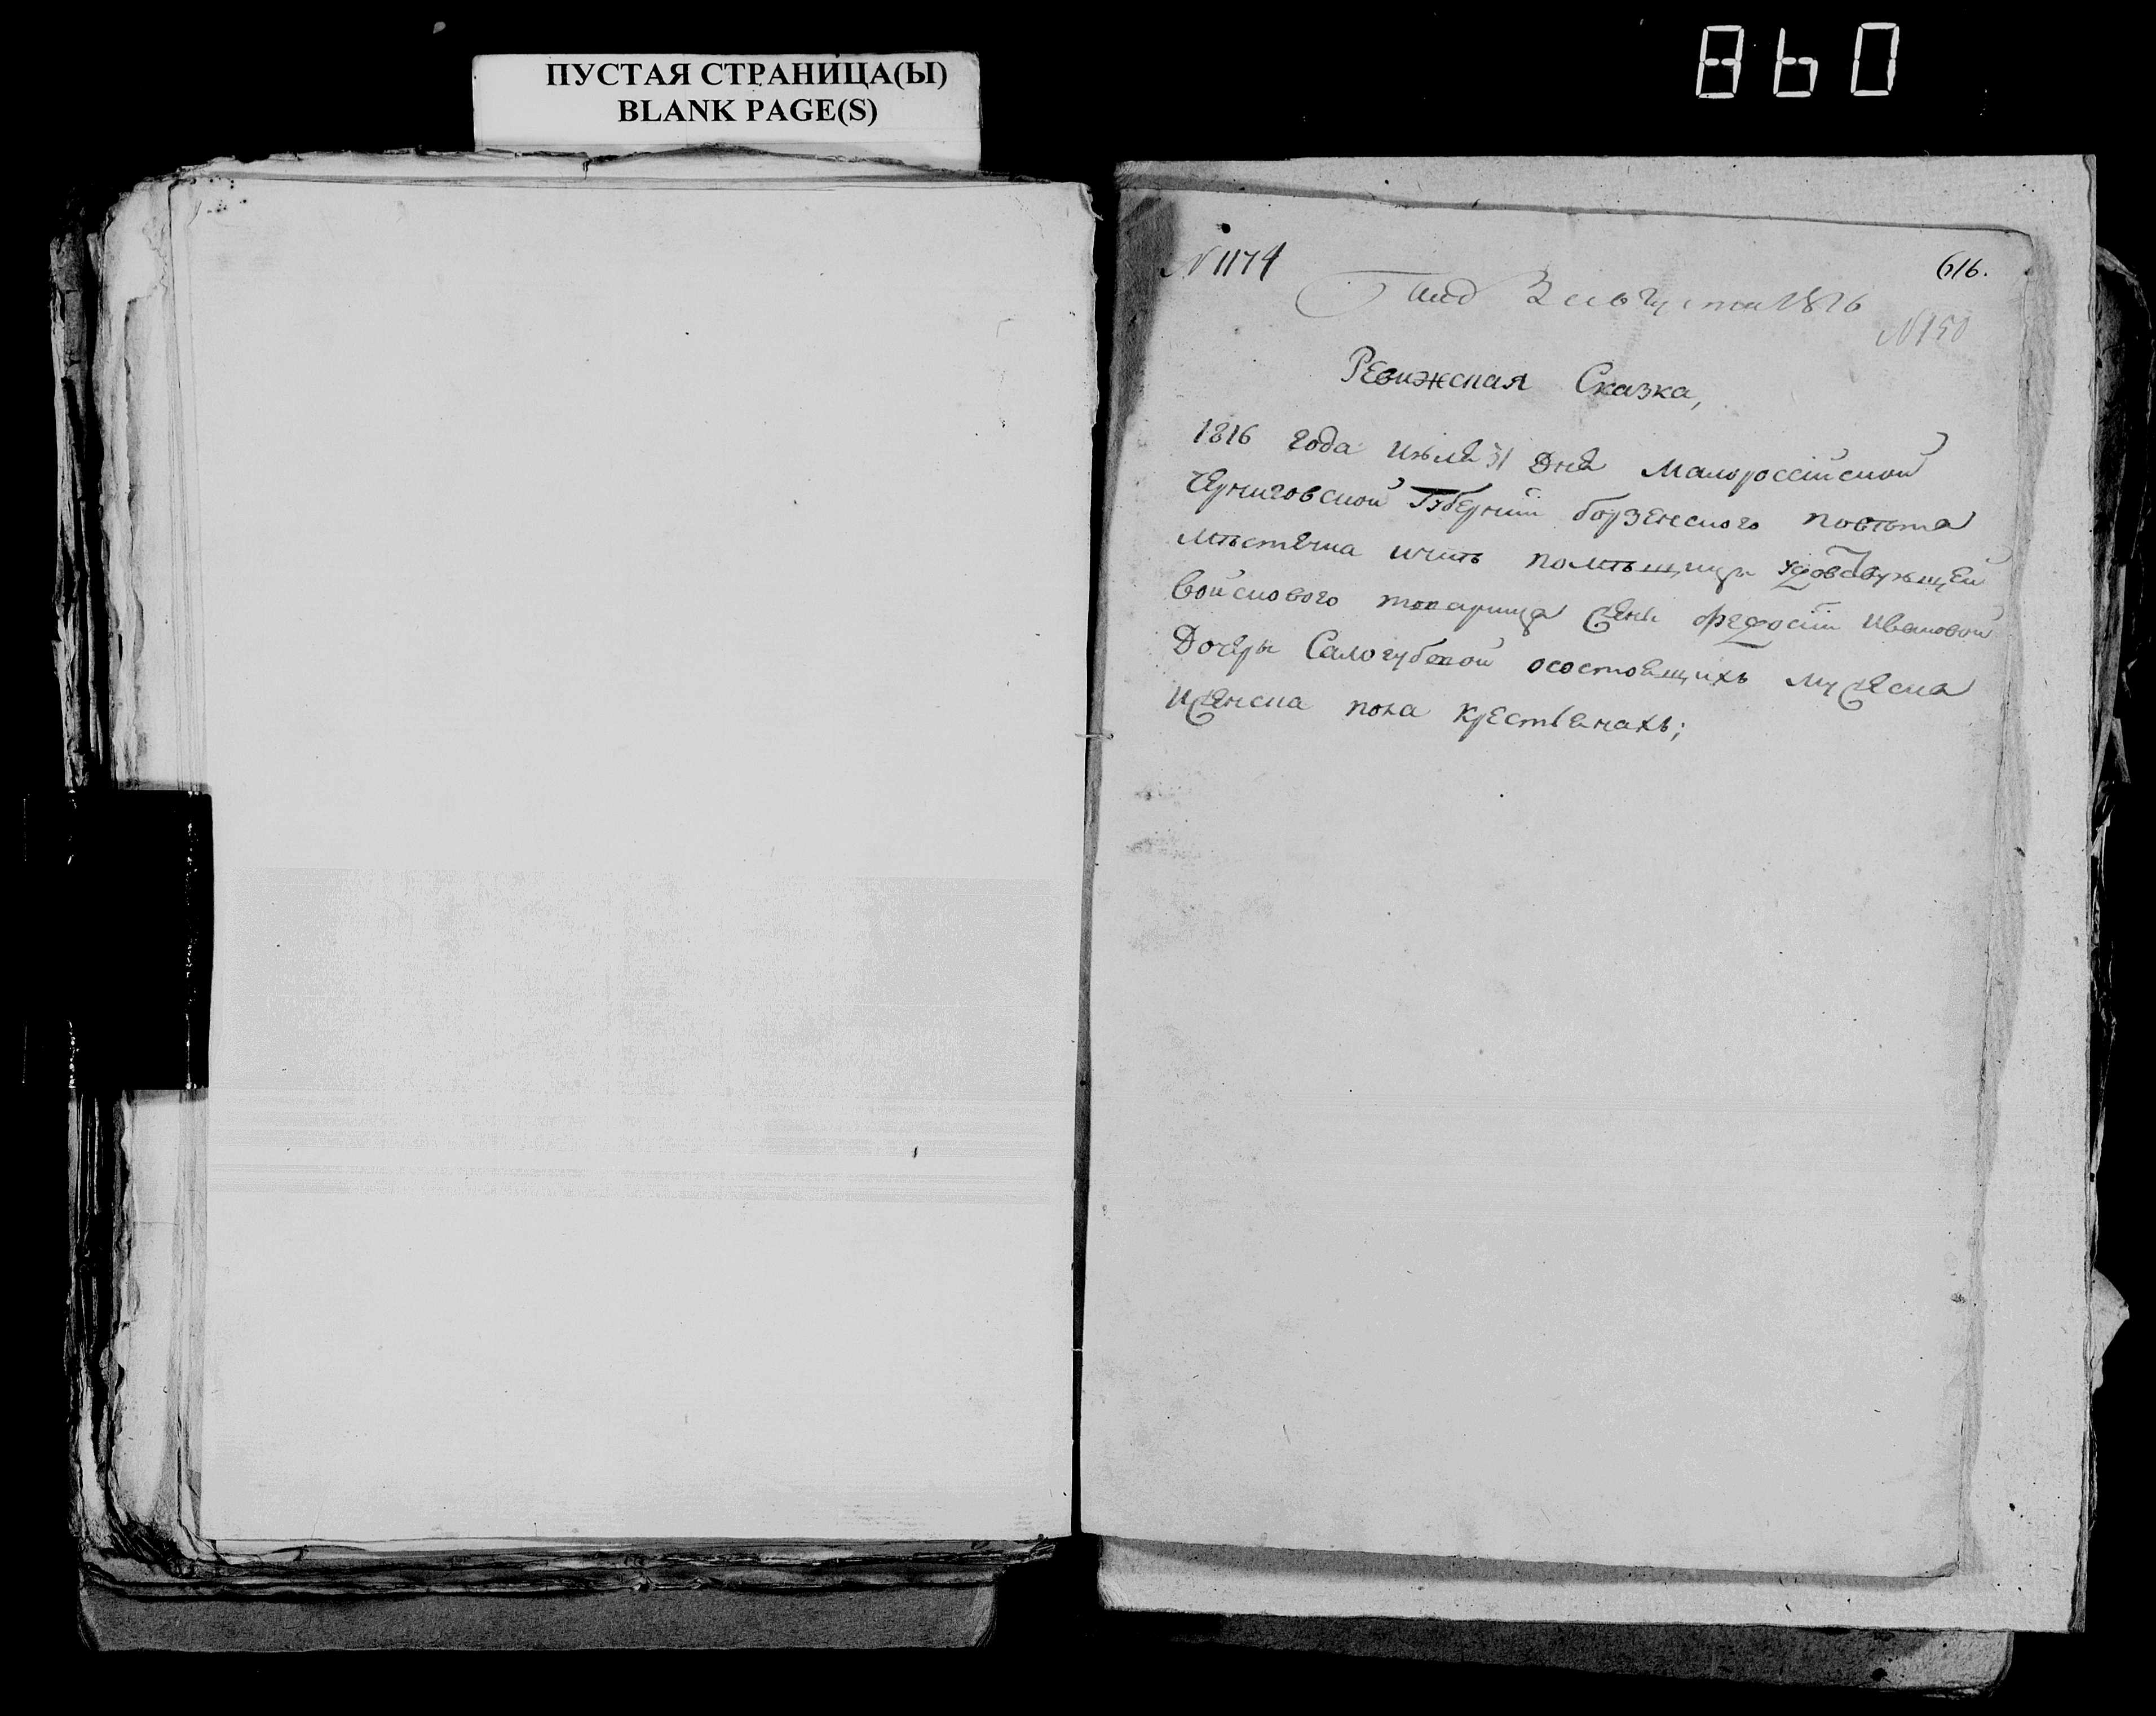 ПУСТАЯ СТРАНИЦА(Ы)
BLANK PAGE(S)
№ 1174
616.
3 августа 1816
№ 150
Ревижская Сказка,
1816 года июля 31 дня Малороссійской
Черниговской Губерніи борзенского повѣта
мѣстечка ични помѣщицы удовствующей
войскового товарища жены Феодосіи Ивановой
Дочеры Самогубовой осостоящихъ мужеска
иженска пола крестьянахъ;